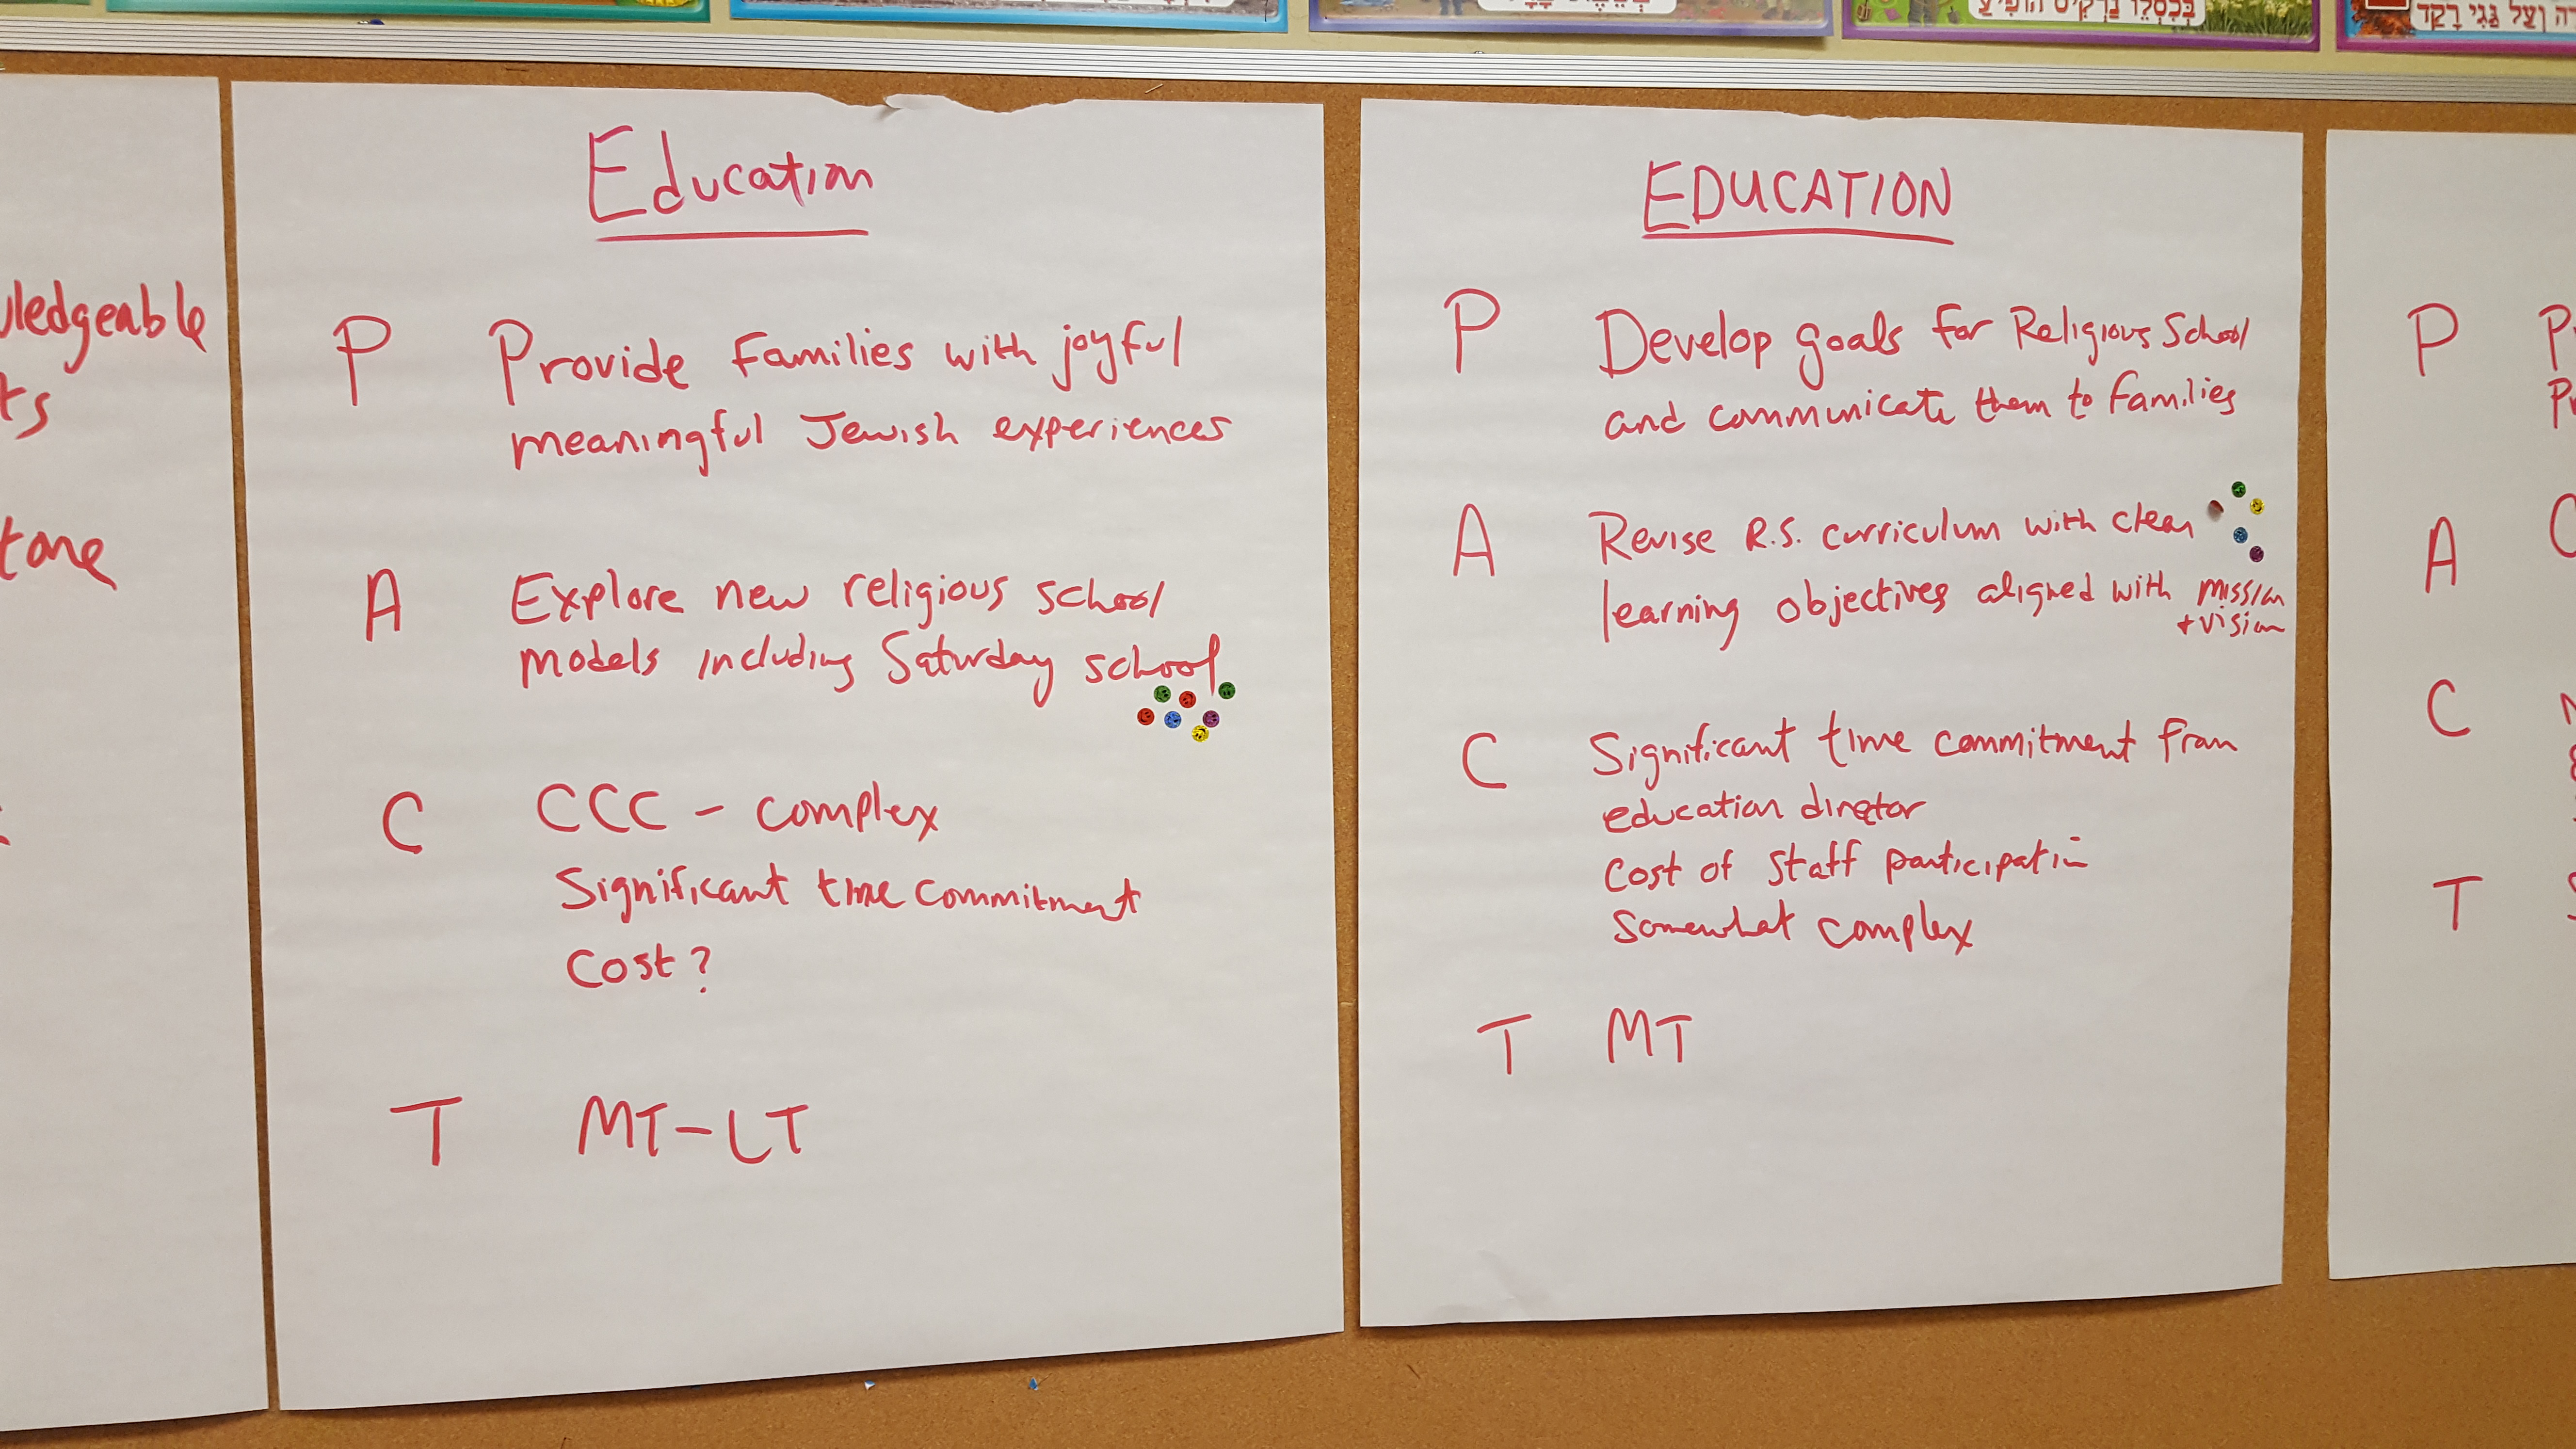 בְּכִסְלֵו נַרְקִיס הוֹפִיעַ
וְעַל גַּגִּי רָקַד
wledgeable
ts
tone
Education
P Provide Families with joyful
meaningful Jewish experiences
A Explore new religious school
models including Saturday school
C CCC - complex
Significant time commitment
Cost?
T MT-LT
EDUCATION
P Develop goals for Religious School
and communicate them to families
A Revise R.S. curriculum with clear
learning objectives aligned with mission
+ vision
C Significant time commitment from
education director
Cost of staff participation
Somewhat complex
T MT
P
A
C
T